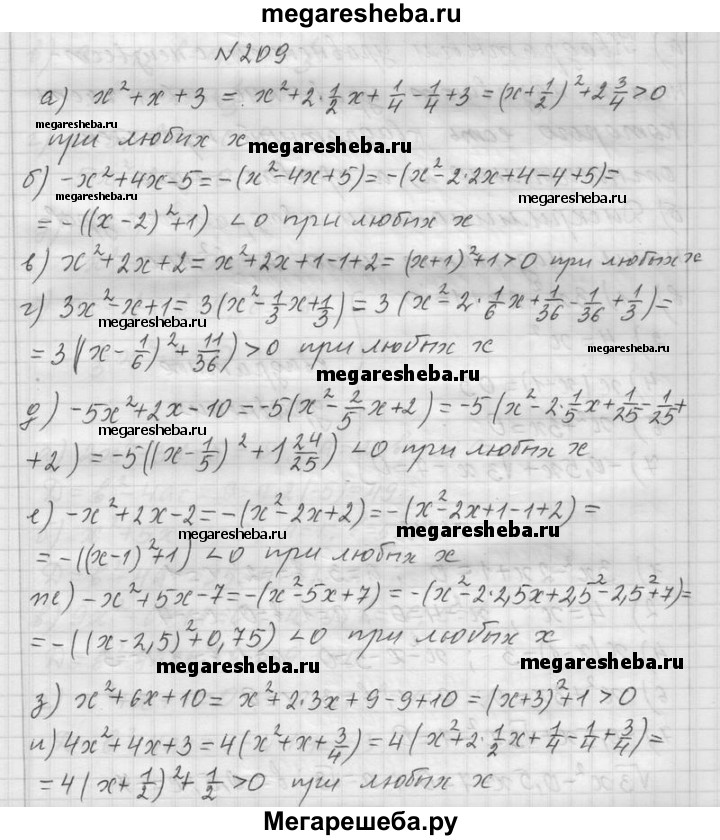 megaresheba.ru
N 209
а) x² + x + 3 = x² + 2·1/2x + 1/4 - 1/4 + 3 = (x + 1/2)² + 2 3/4 > 0
megaresheba.ru
при любых x megaresheba.ru
б) -x² + 4x - 5 = -(x² - 4x + 5) = -(x² - 2·2x + 4 - 4 + 5) =
megaresheba.ru megaresheba.ru
= -((x - 2)² + 1) < 0 при любых x
в) x² + 2x + 2 = x² + 2x + 1 - 1 + 2 = (x + 1)² + 1 > 0 при любых x
г) 3x² - x + 1 = 3(x² - 1/3x + 1/3) = 3(x² - 2·1/6x + 1/36 - 1/36 + 1/3) =
megaresheba.ru
= 3((x - 1/6)² + 11/36) > 0 при любых x megaresheba.ru
megaresheba.ru
д) -5x² + 2x - 10 = -5(x² - 2/5x + 2) = -5(x² - 2·1/5x + 1/25 - 1/25 +
megaresheba.ru
+ 2) = -5((x - 1/5)² + 1 24/25) < 0 при любых x
е) -x² + 2x - 2 = -(x² - 2x + 2) = -(x² - 2x + 1 - 1 + 2) =
megaresheba.ru megaresheba.ru
= -((x - 1)² + 1) < 0 при любых x
ж) -x² + 5x - 7 = -(x² - 5x + 7) = -(x² - 2·2,5x + 2,5² - 2,5² + 7) =
megaresheba.ru
= -((x - 2,5)² + 0,75) < 0 при любых x
megaresheba.ru megaresheba.ru
з) x² + 6x + 10 = x² + 2·3x + 9 - 9 + 10 = (x + 3)² + 1 > 0
megaresheba.ru
и) 4x² + 4x + 3 = 4(x² + x + 3/4) = 4(x² + 2·1/2x + 1/4 - 1/4 + 3/4) =
= 4(x + 1/2)² + 1/2 > 0 при любых x
Мегарешеба.ру